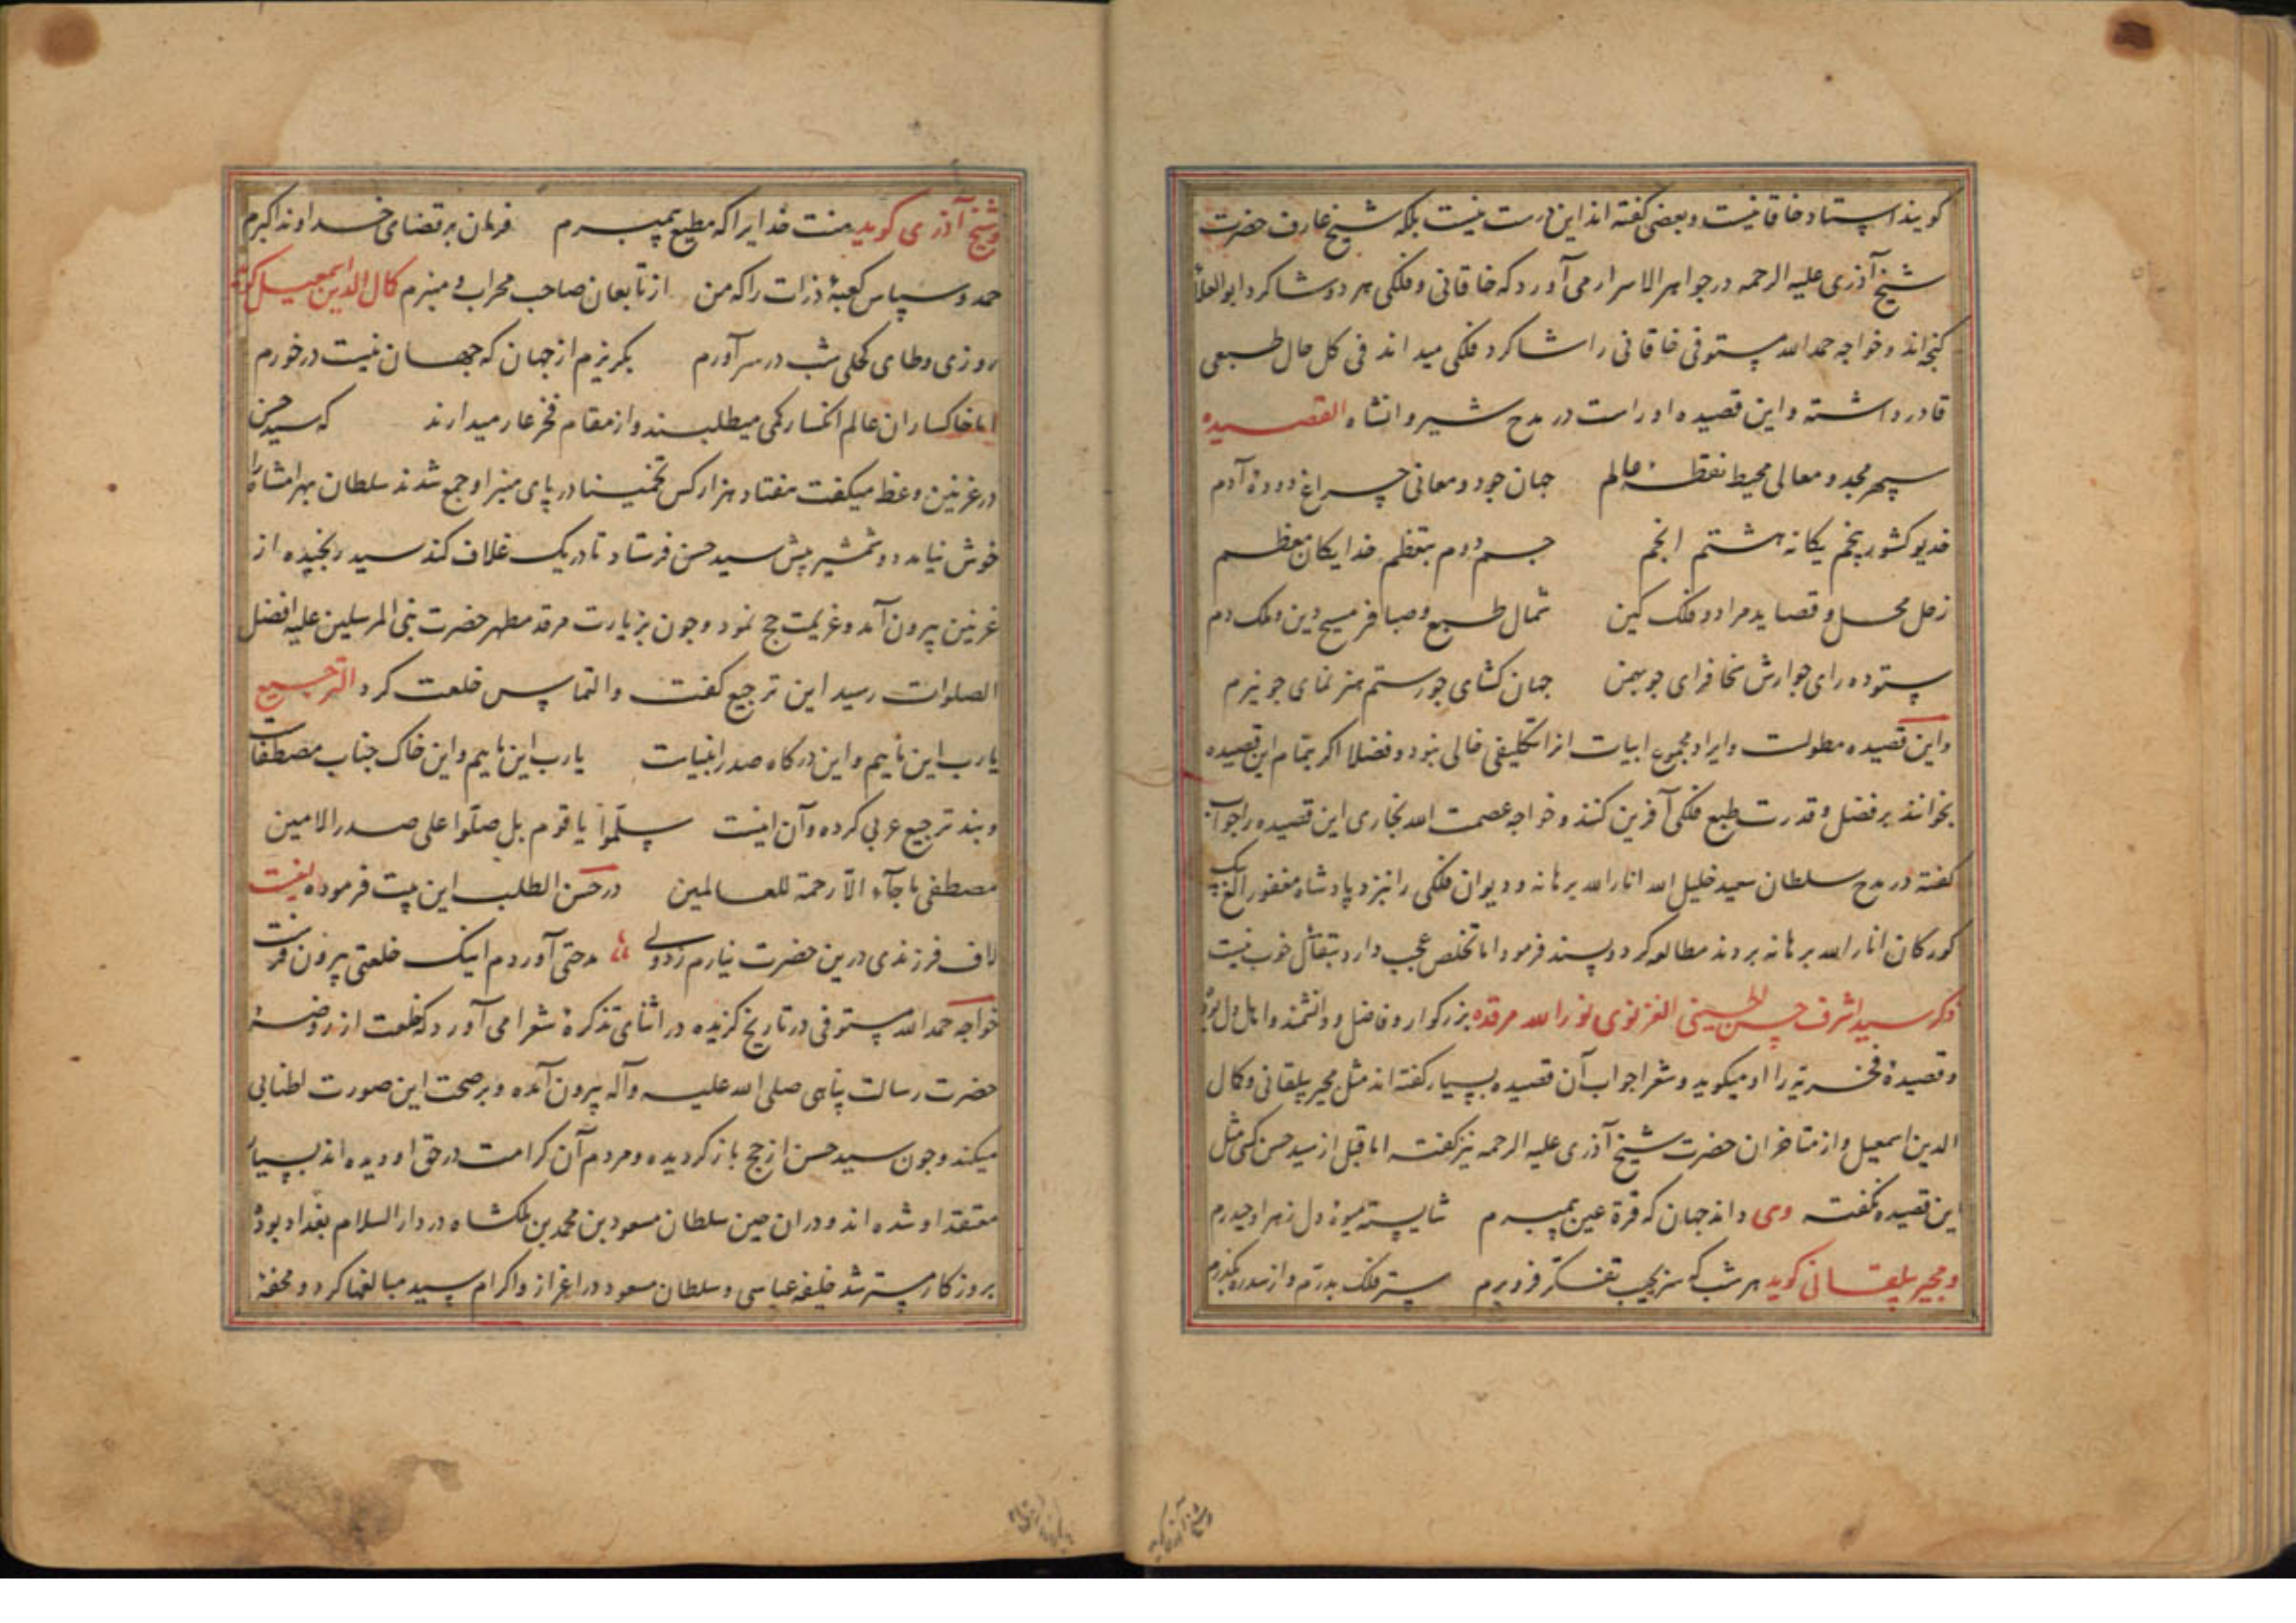 کویند استاد خاقانیست و بعضی کفته اند این درست نیست بلکه شیخ عارف حضرت
شیخ آذری علیه الرحمه در جواهر الاسرار می آورد که خاقانی و فلکی هر دو شاکرد ابو العلا
کنجه اند و خواجه حمد الله مستوفی خاقانی را شاکرد فلکی میداند فی کل حال طبعی
قادر داشته و این قصیده او راست در مدح شیروانشاه القصیده
سپهر مجد و معالی محیط نقطه عالم جهان جود و معانی چراغ دوده آدم
خدیو کشور پنجم یکانه هشتم انجم جسم دوم بتعظم خدایکان معظم
زحل محل و قصا ید مراد و فلک کین شمال طبع و صبا فر مسیح دین و ملک دم
ستوده رای جو ارش سخا فزای جو بهمن جهان کشای جو رستم هنر نمای جو نیرم
و این قصیده مطولت و ایراد مجموع ابیات از تکلیفی خالی نبود و فضلا اکر بتمام این قصیده
بخوانند بر فضل و قدرت طبع فلکی آفرین کنند و خواجه عصمت الله بخاری این قصیده را جواب
کفته در مدح سلطان سعید خلیل الله انار الله برهانه و دیوان فلکی را نزد پادشاه مغفور الغ بیک
کورکان انار الله برهانه بردند مطالعه کرد و پسند فرمود اما تخلص عجب دارد بتفأل خوب نیست
ذکر سید اشرف حسن الحسینی الغزنوی نور الله مرقده بزرکوار و فاضل و دانشمند و اهل دل بوده
و قصیده فخریه را او میکوید و شعرا جواب آن قصیده بسیار کفته اند مثل مجیر بیلقانی و کمال
الدین اسمعیل و از متاخران حضرت شیخ آذری علیه الرحمه نیز کفته اما قبل از سید حسن کسی مثل
این قصیده نکفته وی داند جهان که قرة عین پیمبرم شایسته میوه دل زهرا و حیدرم
و مجیر بیلقانی کوید هر شب که سر بجیب تفکر فرو برم ستر فلک بدرم و از سدره بکذرم
و شیخ آذری کوید
و شیخ آذری کوید منت خدایرا که مطیع پیمبرم فرمان بر قضای خداوند اکبرم
حمد و سپاس کعبه ذرات را که من از تابعان صاحب محراب و منبرم کمال الدین اسمعیل کوید
روزی وطای کحلی شب در سر آورم بکریزم از جهان که جهان نیست در خورم
اما خاکساران عالم انکسار کمی میطلبند و از مقام فخر عار میدارند که سید حسن
در غزنین وعظ میکفت هفتاد هزار کس تخمینا در پای منبر او جمع شدند سلطان بهرامشاه را
خوش نیامد دو شمشیر پیش سید حسن فرستاد تا در یک غلاف کند سید رنجیده از
غزنین بیرون آمد و عزیمت حج نمود و چون بزیارت مرقد مطهر حضرت نبی المرسلین علیه افضل
الصلوات رسید این ترجیع کفت و التماس خلعت کرد الترجیع
یا رب این ماییم و این درکاه صدر انبیاست یا رب این ماییم و این خاک جناب مصطفاست
و بند ترجیع عربی کرده و آن اینست سلموا یا قوم بل صلوا علی صدر الامین
مصطفی ما جآء الا رحمة للعالمین در حسن الطلب این بیت فرموده بیت
لاف فرزندی درین حضرت نیارم زد ولی مدحتی آوردم اینک خلعتی بیرون فرست
خواجه حمد الله مستوفی در تاریخ کزیده در اثنای تذکره شعرا می آورد که خلعت از روضه
حضرت رسالت پناهی صلی الله علیه و آله بیرون آمده و بر صحت این صورت اطنابی
میکند و جون سید حسن از حج باز کردیده و مردم آن کرامت در حق او دیده اند بسیار
معتقد او شده اند و در ان حین سلطان مسعود بن محمد بن ملکشاه در دار السلام بغداد بوده
بروزکار مسترشد خلیفه عباسی و سلطان مسعود در اعزاز و اکرام سید مبالغها کرد و محفه